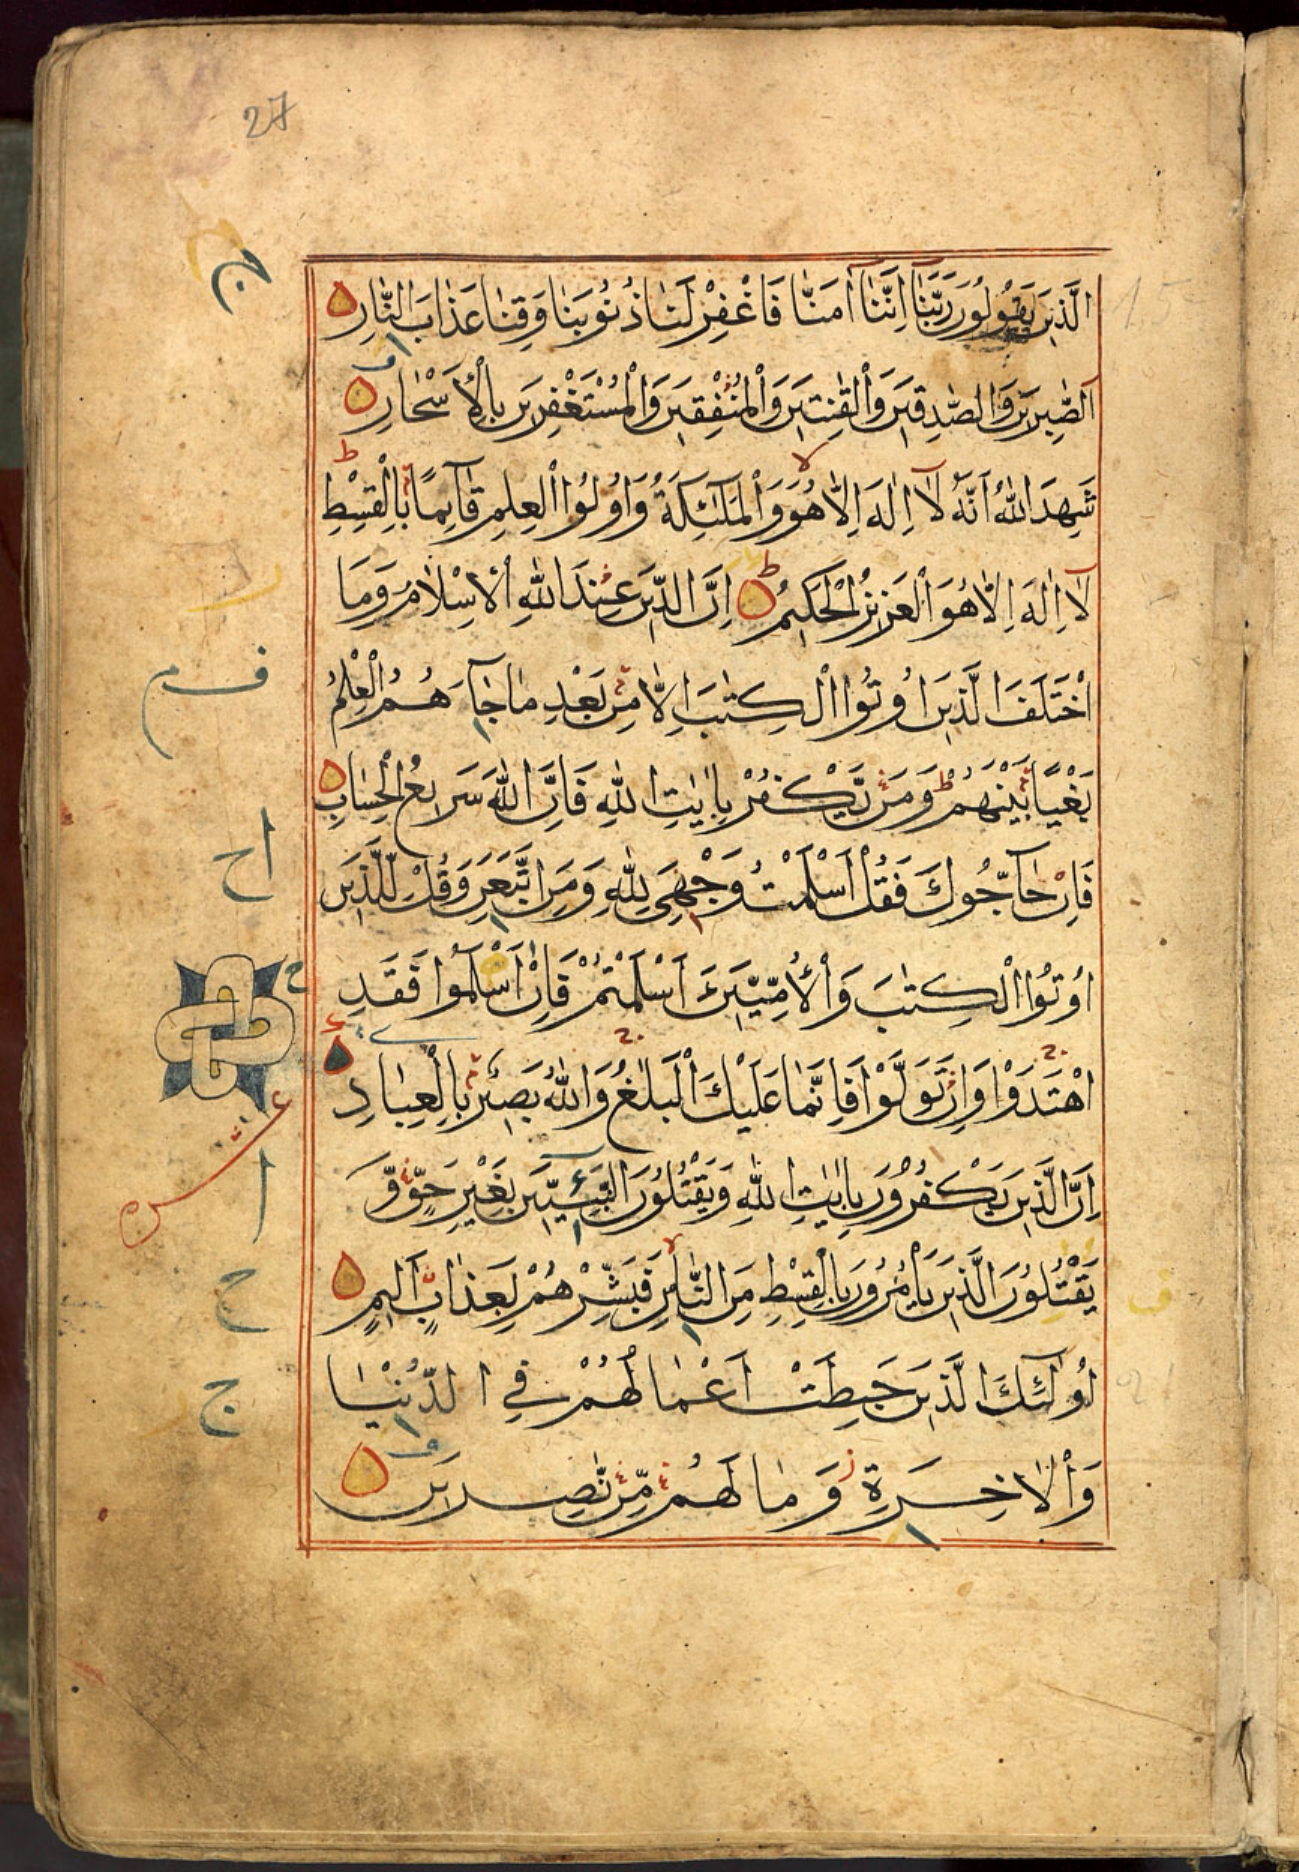 27
الَّذِينَ يَقُولُونَ رَبَّنَآ اِنَّنَآ اٰمَنَّا فَاغْفِرْ لَنَا ذُنُوبَنَا وَقِنَا عَذَابَ النَّارِ
اَلصّٰبِرِينَ وَالصّٰدِقِينَ وَالْقٰنِتِينَ وَالْمُنْفِقِينَ وَالْمُسْتَغْفِرِينَ بِالْاَسْحَارِ
شَهِدَ اللّٰهُ اَنَّهُ لَآ اِلٰهَ اِلَّا هُوَ وَالْمَلٰٓئِكَةُ وَاُولُوا الْعِلْمِ قَآئِمًا بِالْقِسْطِ
لَآ اِلٰهَ اِلَّا هُوَ الْعَزِيزُ الْحَكِيمُ اِنَّ الدِّينَ عِنْدَ اللّٰهِ الْاِسْلَامُ وَمَا
اخْتَلَفَ الَّذِينَ اُوتُوا الْكِتٰبَ اِلَّا مِنْ بَعْدِ مَا جَآءَهُمُ الْعِلْمُ
بَغْيًا بَيْنَهُمْ وَمَنْ يَّكْفُرْ بِاٰيٰتِ اللّٰهِ فَاِنَّ اللّٰهَ سَرِيعُ الْحِسَابِ
فَاِنْ حَآجُّوكَ فَقُلْ اَسْلَمْتُ وَجْهِيَ لِلّٰهِ وَمَنِ اتَّبَعَنِ وَقُلْ لِّلَّذِينَ
اُوتُوا الْكِتٰبَ وَالْاُمِّيِّينَ ءَاَسْلَمْتُمْ فَاِنْ اَسْلَمُوا فَقَدِ
اهْتَدَوْا وَاِنْ تَوَلَّوْا فَاِنَّمَا عَلَيْكَ الْبَلٰغُ وَاللّٰهُ بَصِيرٌ بِالْعِبَادِ
اِنَّ الَّذِينَ يَكْفُرُونَ بِاٰيٰتِ اللّٰهِ وَيَقْتُلُونَ النَّبِيِّينَ بِغَيْرِ حَقٍّ وَّ
يَقْتُلُونَ الَّذِينَ يَاْمُرُونَ بِالْقِسْطِ مِنَ النَّاسِ فَبَشِّرْهُمْ بِعَذَابٍ اَلِيمٍ
اُولٰٓئِكَ الَّذِينَ حَبِطَتْ اَعْمَالُهُمْ فِي الدُّنْيَا
وَالْاٰخِرَةِ وَمَا لَهُمْ مِّنْ نّٰصِرِينَ